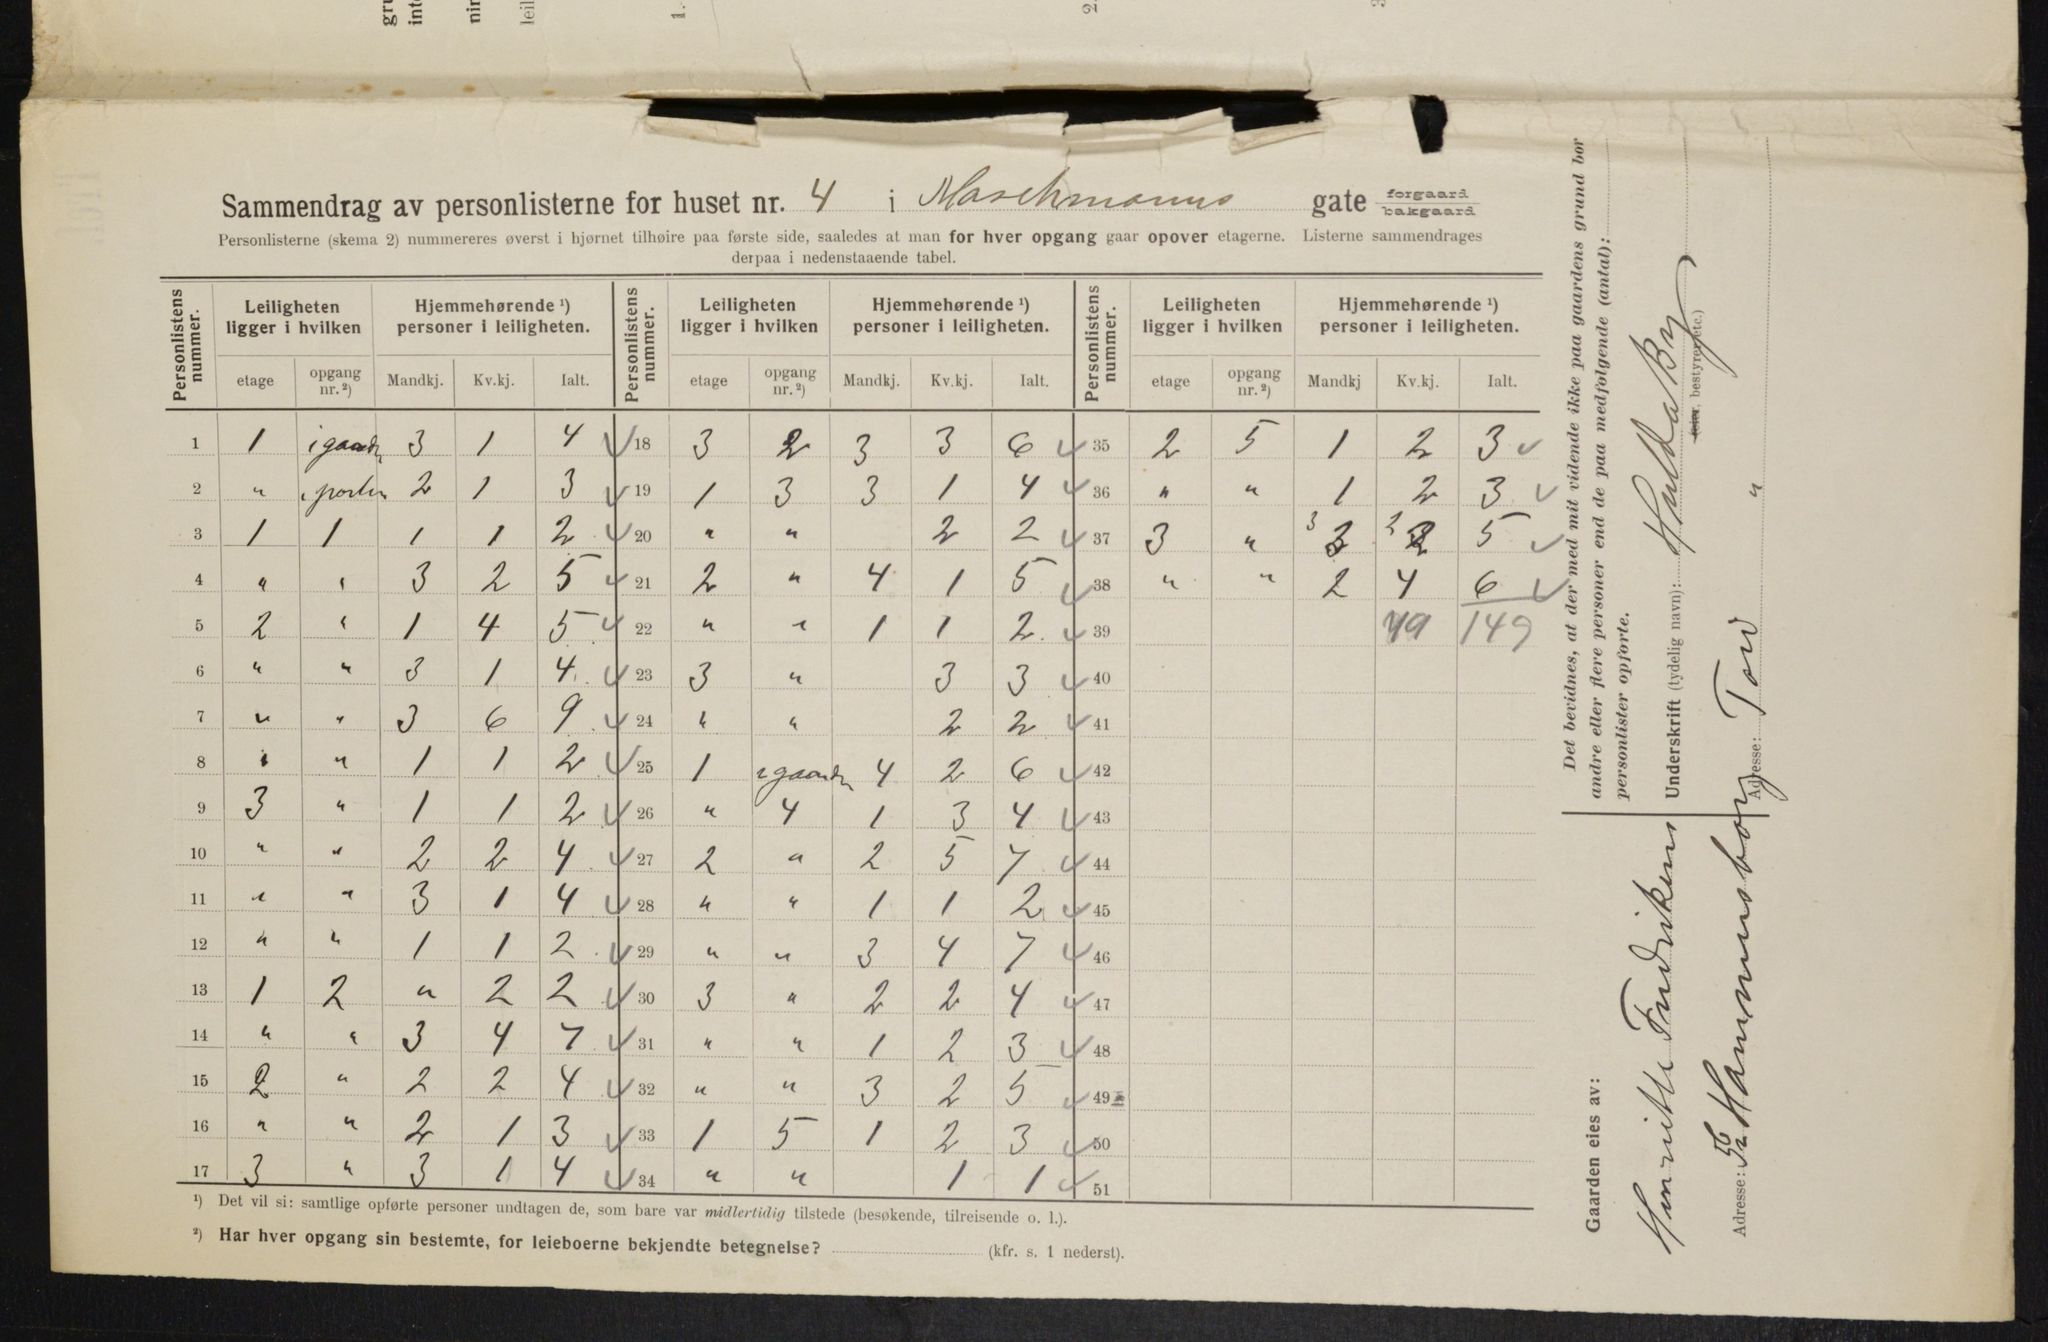 Sammendrag av personlisterne for huset nr. 4 i Maschmanns gate forgaard bakgaard
Personlisterne (skema 2) nummereres øverst i hjørnet tilhøire paa første side, saaledes at man for hver opgang gaar opover etagerne. Listerne sammendrages
derpaa i nedenstaaende tabel.
Personlistens nummer. Leiligheten ligger i hvilken Hjemmehørende ¹) personer i leiligheten. Personlistens nummer. Leiligheten ligger i hvilken Hjemmehørende ¹) personer i leiligheten. Personlistens nummer. Leiligheten ligger i hvilken Hjemmehørende ¹) personer i leiligheten.
etage opgang nr. ²) Mandkj. Kv.kj. Ialt. etage opgang nr. ²) Mandkj. Kv.kj. Ialt. etage opgang nr. ²) Mandkj Kv.kj. Ialt.
1 1 i gaarden 3 1 4 ✓ 18 3 2 3 3 6 ✓ 35 2 5 1 2 3 ✓
2 " i porten 2 1 3 ✓ 19 1 3 3 1 4 ✓ 36 " " 1 2 3 ✓
3 1 1 1 1 2 ✓ 20 " " 2 2 ✓ 37 3 " 3 2 5 ✓
4 " " 3 2 5 ✓ 21 2 " 4 1 5 ✓ 38 " " 2 4 6 ✓
5 2 " 1 4 5 ✓ 22 " " 1 1 2 ✓ 39 149
6 " " 3 1 4 ✓ 23 3 " 3 3 ✓ 40
7 " " 3 6 9 ✓ 24 " " 2 2 ✓ 41
8 " " 1 1 2 ✓ 25 1 i gaarden 4 2 6 ✓ 42
9 3 " 1 1 2 ✓ 26 " 4 1 3 4 ✓ 43
10 " " 2 2 4 ✓ 27 2 " 2 5 7 ✓ 44
11 " " 3 1 4 ✓ 28 " " 1 1 2 ✓ 45
12 " " 1 1 2 ✓ 29 " " 3 4 7 ✓ 46
13 1 2 " 2 2 ✓ 30 3 " 2 2 4 ✓ 47
14 " " 3 4 7 ✓ 31 " " 1 2 3 ✓ 48
15 2 " 2 2 4 ✓ 32 " " 3 2 5 ✓ 49
16 " " 2 1 3 ✓ 33 1 5 1 2 3 ✓ 50
17 3 " 3 1 4 ✓ 34 " " 1 1 ✓ 51
¹) Det vil si: samtlige opførte personer undtagen de, som bare var midlertidig tilstede (besøkende, tilreisende o. l.).
²) Har hver opgang sin bestemte, for leieboerne bekjendte betegnelse? (kfr. s. 1 nederst).
Det bevidnes, at der med mit vidende ikke paa gaardens grund bor
andre eller flere personer end de paa medfølgende (antal):
personlister opførte.
Underskrift (tydelig navn): Hulda By
(eier, bestyrer etc.)
Adresse: "
Gaarden eies av:
Henriette Fredriksens
Adresse: Hammersborg Torv